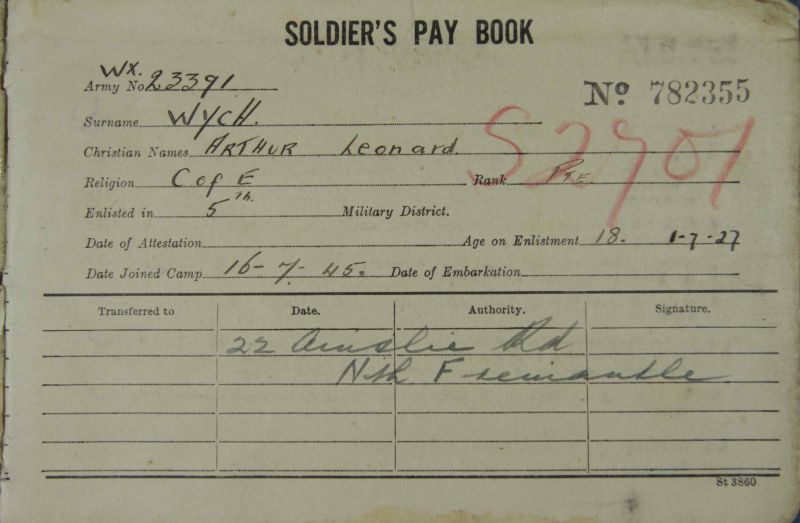 SOLDIER'S PAY BOOK
WX.
Army No. 23391
No 782355
Surname WYCH.
Christian Names ARTHUR Leonard
Religion C of E Rank PTE.
Enlisted in 5th. Military District.
Date of Attestation Age on Enlistment 18. 1-7-27
Date Joined Camp 16-7-45. Date of Embarkation
Transferred to Date. Authority. Signature.
22 Ainslie Rd
Nth Fremantle
St 3860